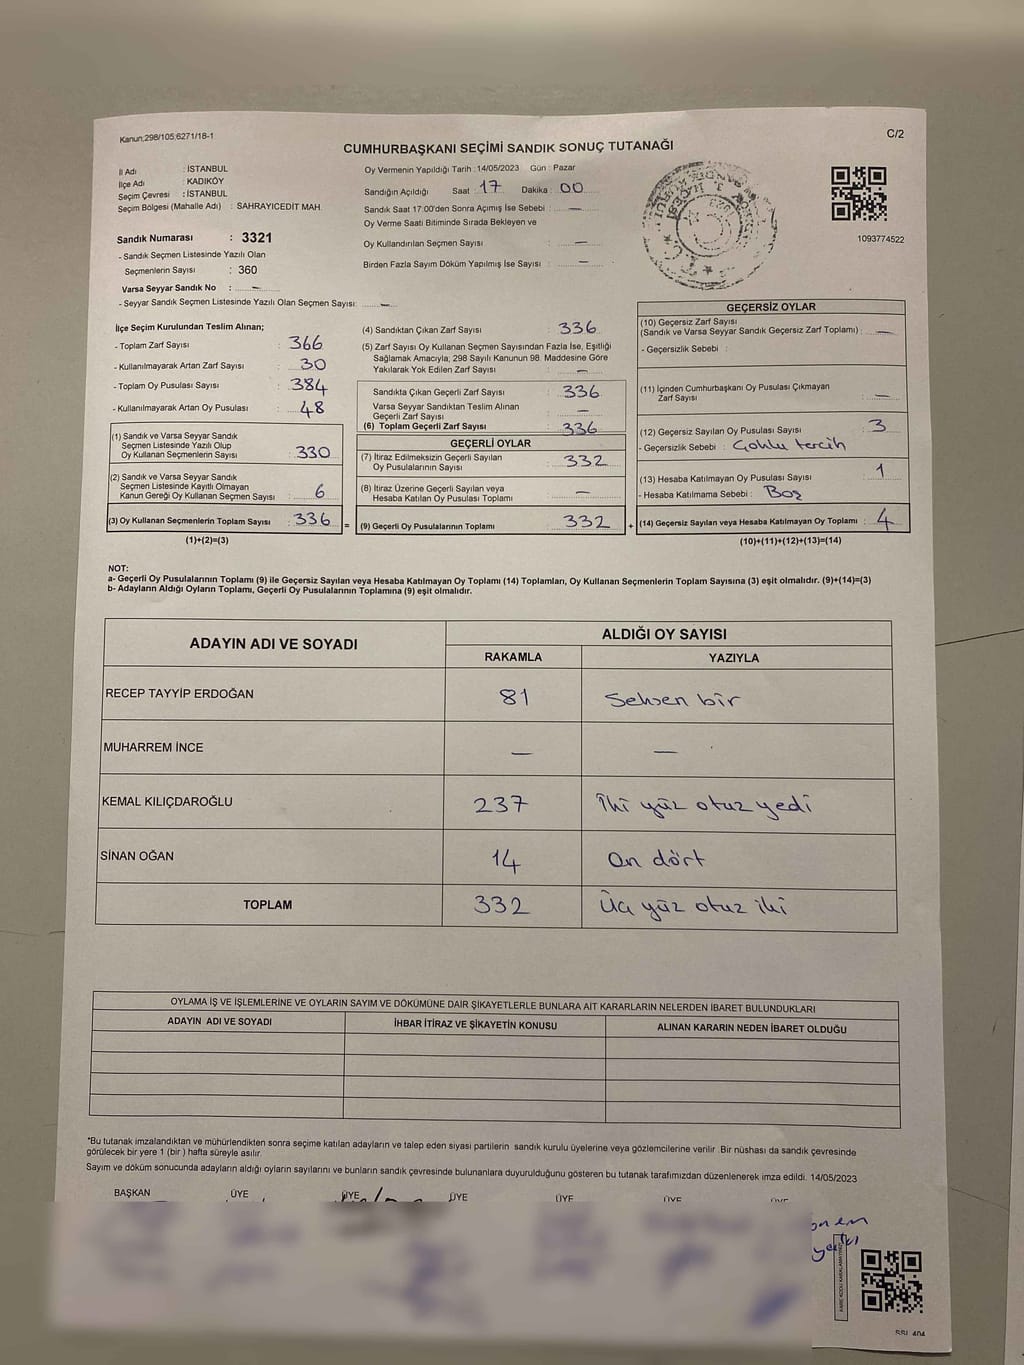 Kanun:298/105;6271/18-1
C/2
CUMHURBAŞKANI SEÇİMİ SANDIK SONUÇ TUTANAĞI
İl Adı : İSTANBUL
İlçe Adı : KADIKÖY
Seçim Çevresi : İSTANBUL
Seçim Bölgesi (Mahalle Adı) : SAHRAYICEDİT MAH.
Sandık Numarası : 3321
- Sandık Seçmen Listesinde Yazılı Olan
Seçmenlerin Sayısı : 360
Varsa Seyyar Sandık No : —
- Seyyar Sandık Seçmen Listesinde Yazılı Olan Seçmen Sayısı: —
Oy Vermenin Yapıldığı Tarih : 14/05/2023 Gün : Pazar
Sandığın Açıldığı Saat : 17 Dakika : 00
Sandık Saat 17:00'den Sonra Açımış İse Sebebi : —
Oy Verme Saati Bitiminde Sırada Bekleyen ve
Oy Kullandırılan Seçmen Sayısı : —
Birden Fazla Sayım Döküm Yapılmış İse Sayısı : —
1093774522
İlçe Seçim Kurulundan Teslim Alınan;
- Toplam Zarf Sayısı : 366
- Kullanılmayarak Artan Zarf Sayısı : 30
- Toplam Oy Pusulası Sayısı : 384
- Kullanılmayarak Artan Oy Pusulası : 48
(1) Sandık ve Varsa Seyyar Sandık
Seçmen Listesinde Yazılı Olup
Oy Kullanan Seçmenlerin Sayısı : 330
(2) Sandık ve Varsa Seyyar Sandık
Seçmen Listesinde Kayıtlı Olmayan
Kanun Gereği Oy Kullanan Seçmen Sayısı : 6
(3) Oy Kullanan Seçmenlerin Toplam Sayısı : 336 =
(1)+(2)=(3)
(4) Sandıktan Çıkan Zarf Sayısı : 336
(5) Zarf Sayısı Oy Kullanan Seçmen Sayısından Fazla İse, Eşitliği
Sağlamak Amacıyla; 298 Sayılı Kanunun 98. Maddesine Göre
Yakılarak Yok Edilen Zarf Sayısı : —
Sandıkta Çıkan Geçerli Zarf Sayısı : 336
Varsa Seyyar Sandıktan Teslim Alınan
Geçerli Zarf Sayısı : —
(6) Toplam Geçerli Zarf Sayısı : 336
GEÇERLİ OYLAR
(7) İtiraz Edilmeksizin Geçerli Sayılan
Oy Pusulalarının Sayısı : 332
(8) İtiraz Üzerine Geçerli Sayılan veya
Hesaba Katılan Oy Pusulası Toplamı : —
(9) Geçerli Oy Pusulalarının Toplamı : 332 +
GEÇERSİZ OYLAR
(10) Geçersiz Zarf Sayısı
(Sandık ve Varsa Seyyar Sandık Geçersiz Zarf Toplamı) : —
- Geçersizlik Sebebi :
(11) İçinden Cumhurbaşkanı Oy Pusulası Çıkmayan
Zarf Sayısı : —
(12) Geçersiz Sayılan Oy Pusulası Sayısı : 3
- Geçersizlik Sebebi : Çoklu tercih
(13) Hesaba Katılmayan Oy Pusulası Sayısı : 1
- Hesaba Katılmama Sebebi : Boş
(14) Geçersiz Sayılan veya Hesaba Katılmayan Oy Toplamı : 4
(10)+(11)+(12)+(13)=(14)
NOT:
a- Geçerli Oy Pusulalarının Toplamı (9) ile Geçersiz Sayılan veya Hesaba Katılmayan Oy Toplamı (14) Toplamları, Oy Kullanan Seçmenlerin Toplam Sayısına (3) eşit olmalıdır. (9)+(14)=(3)
b- Adayların Aldığı Oyların Toplamı, Geçerli Oy Pusulalarının Toplamına (9) eşit olmalıdır.
ADAYIN ADI VE SOYADI
ALDIĞI OY SAYISI
RAKAMLA YAZIYLA
RECEP TAYYİP ERDOĞAN 81 Seksen bir
MUHARREM İNCE — —
KEMAL KILIÇDAROĞLU 237 İki yüz otuz yedi
SİNAN OĞAN 14 On dört
TOPLAM 332 Üç yüz otuz iki
OYLAMA İŞ VE İŞLEMLERİNE VE OYLARIN SAYIM VE DÖKÜMÜNE DAİR ŞİKAYETLERLE BUNLARA AİT KARARLARIN NELERDEN İBARET BULUNDUKLARI
ADAYIN ADI VE SOYADI İHBAR İTİRAZ VE ŞİKAYETİN KONUSU ALINAN KARARIN NEDEN İBARET OLDUĞU
*Bu tutanak imzalandıktan ve mühürlendikten sonra seçime katılan adayların ve talep eden siyasi partilerin sandık kurulu üyelerine veya gözlemcilerine verilir. Bir nüshası da sandık çevresinde
görülecek bir yere 1 (bir) hafta süreyle asılır.
Sayım ve döküm sonucunda adayların aldığı oyların sayılarını ve bunların sandık çevresinde bulunanlara duyurulduğunu gösteren bu tutanak tarafımızdan düzenlenerek imza edildi. 14/05/2023
BAŞKAN ÜYE ÜYE ÜYE ÜYE ÜYE ÜYE